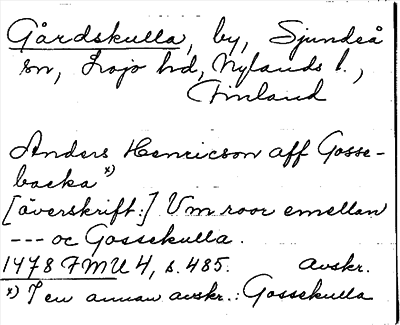 Gårdskulla, by, Sjundeå
sn, Lojo hd, Nylands l.,
Finland
Anders Henricson aff Gosse-
backa x)
[överskrift:] Um roor emellan
--- oc Gossekulla.
1478 FMU 4, s. 485. avskr.
x) I en annan avskr.: Gossekulla